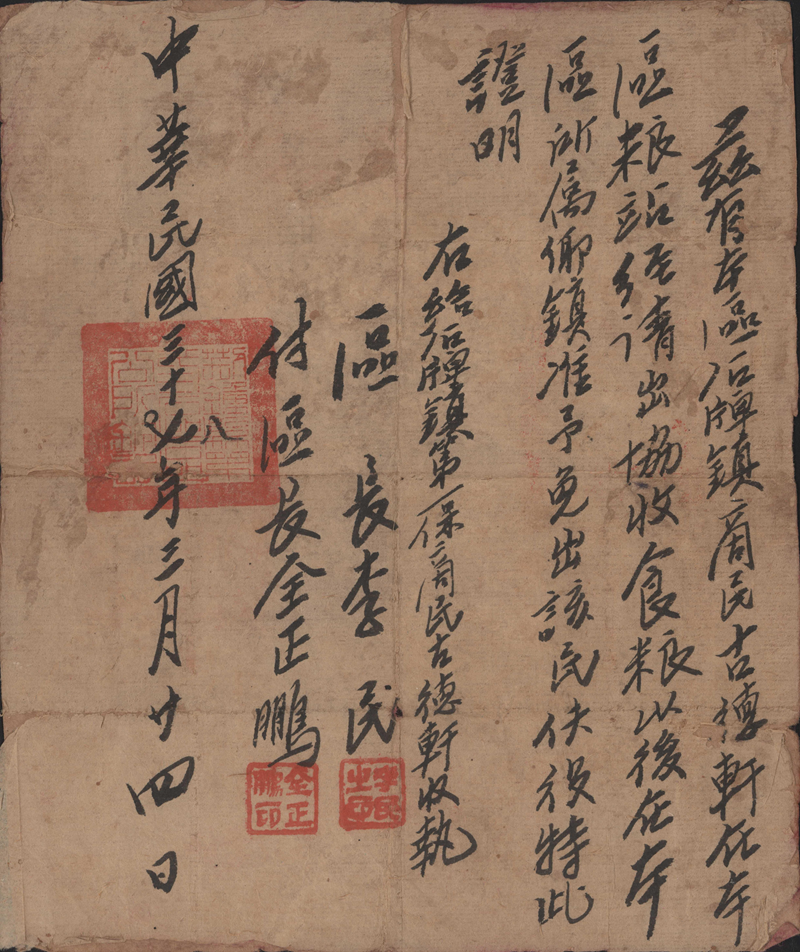 茲有本區石牌鎮商民古德軒在本
區粮站經请出協收食粮以後在本
區所屬鄉鎮准予免出該民伕役特此
證明
右給石牌鎮第一保商民古德軒收執
區長李民
付區長全正鵬
中華民國三十八年三月廿四日
李民
全正鵬印